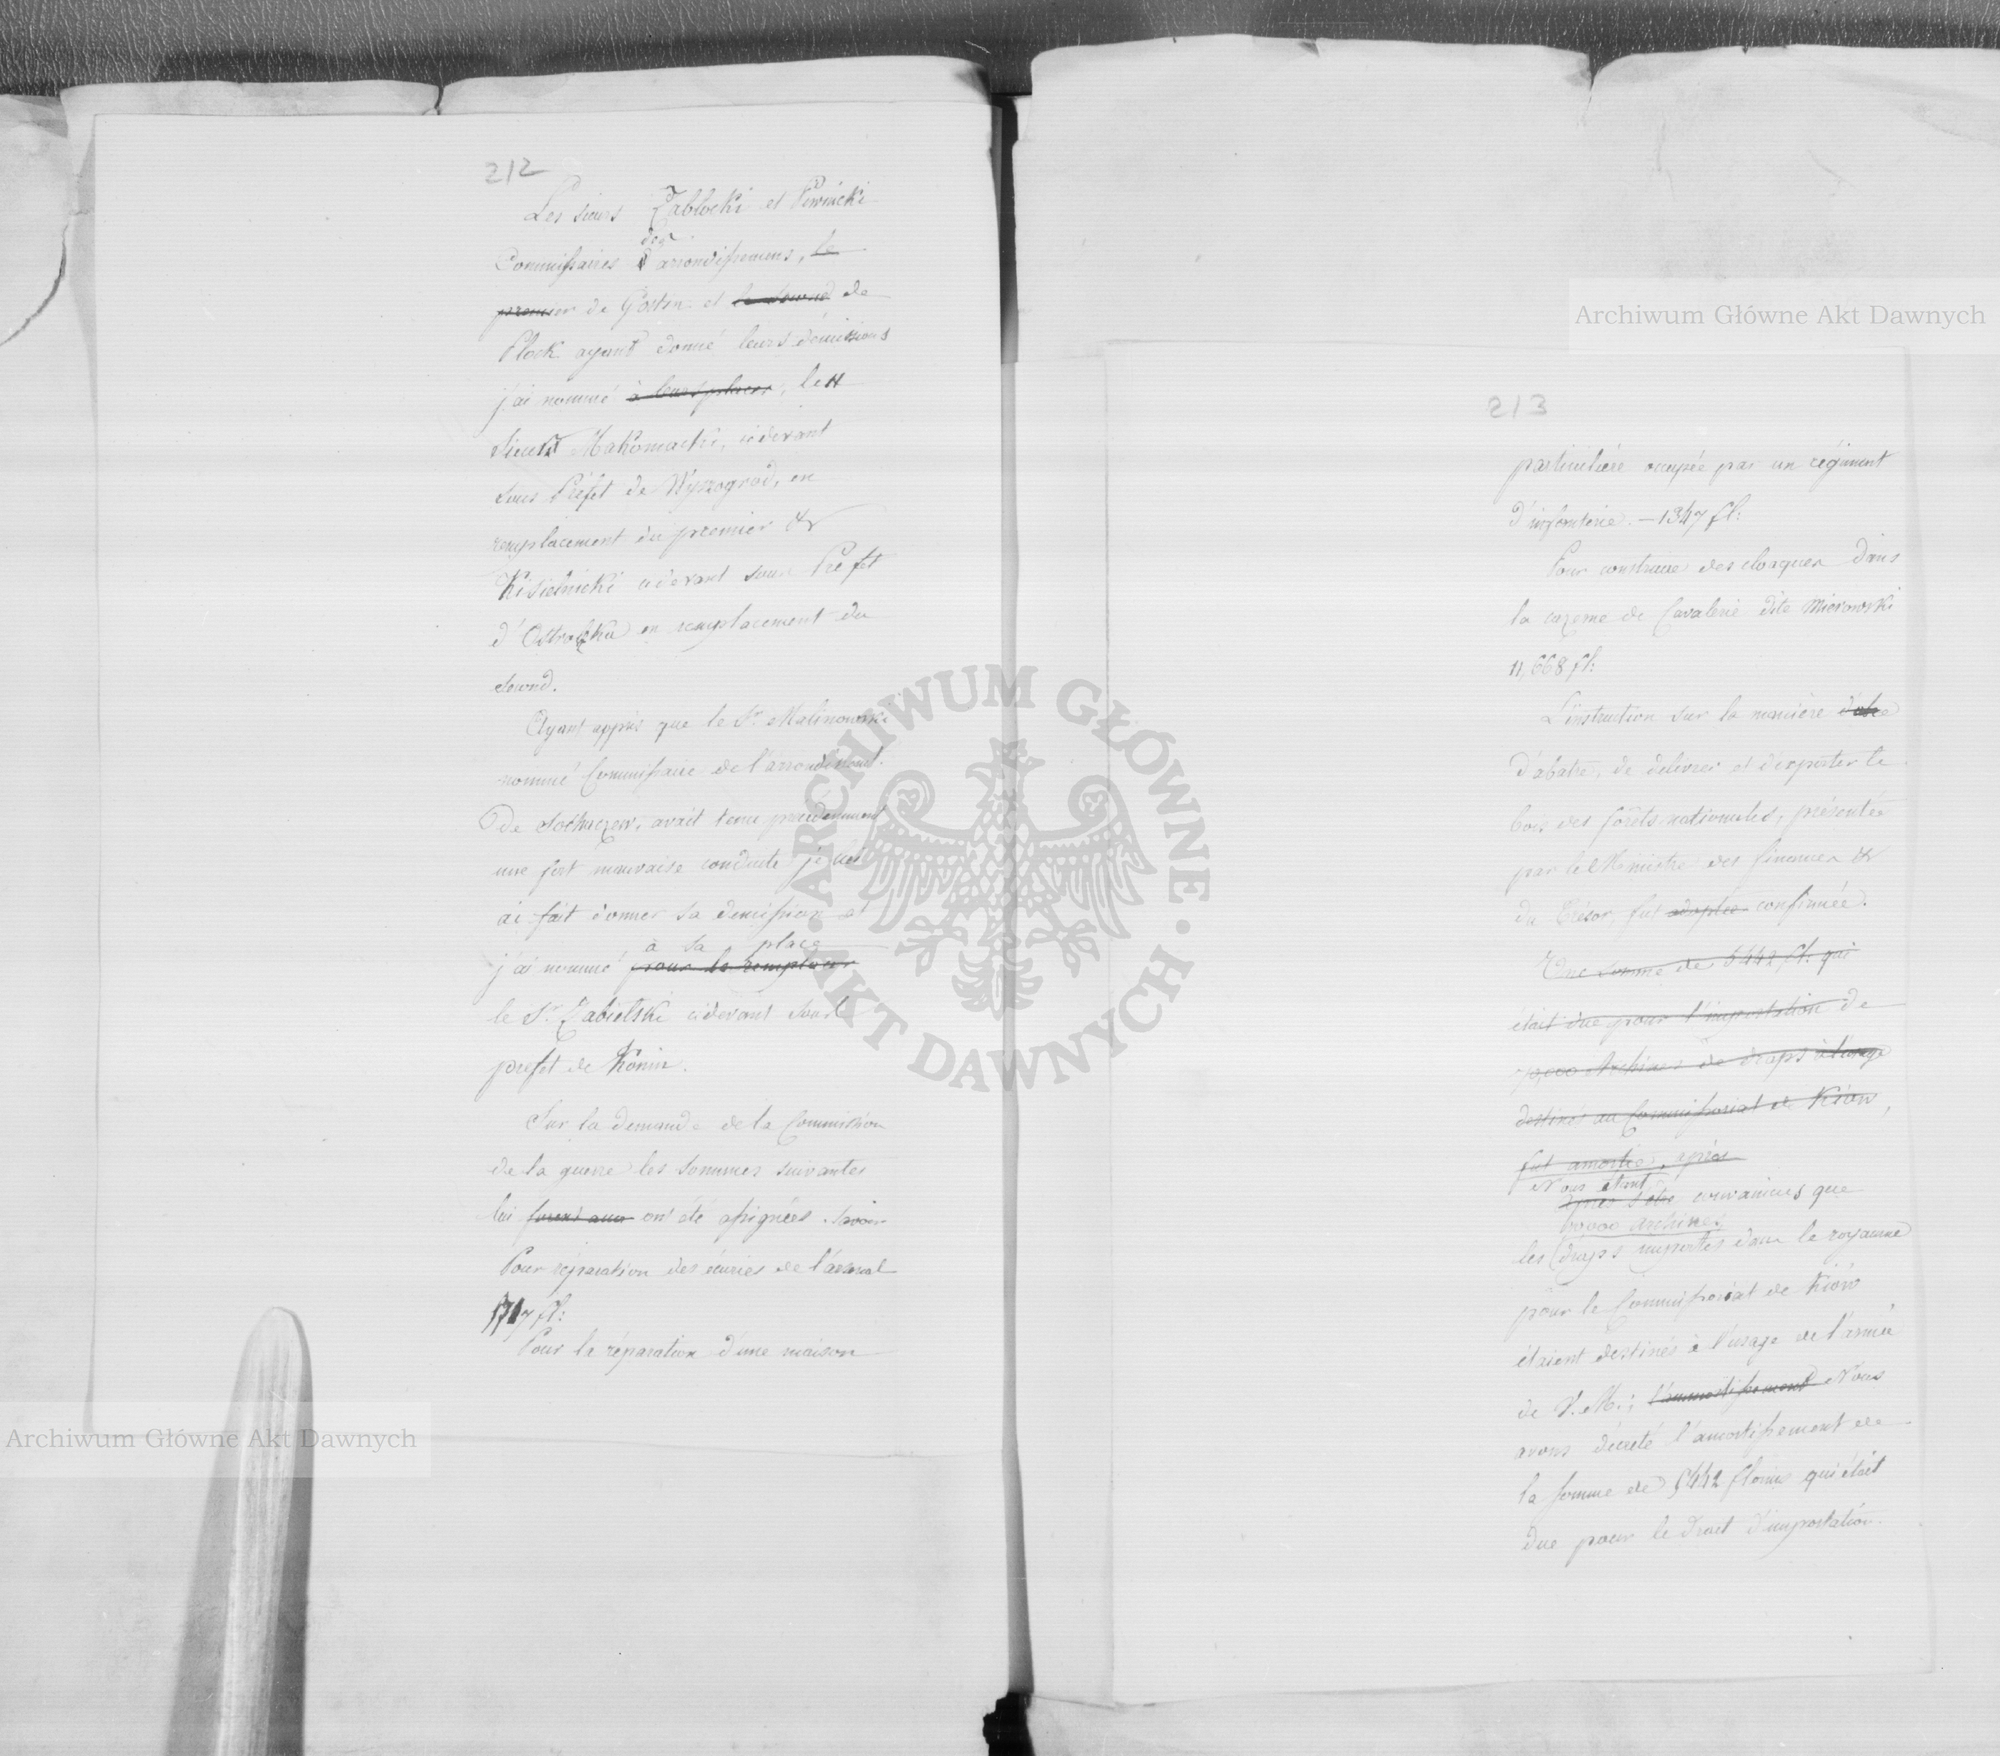 212
Les sieurs Zablocki et Piwnicki
des
Commissaires d'arrondissemens, le
premier de Gostin et le second de
Plock ayant donné leurs démissions
j'ai nommé à leurs places, le
Sieur Makomacki, cidevant
sous Préfet de Wyszogrod, en
remplacement du premier &
Kisielnicki cidevant sous Préfet
d'Ostrołęka en remplacement du
second.
Ayant appris que le Sr. Malinowski
nommé Commissaire de l'arrondissemt.
de Sochaczew, avait tenu précédemment
une fort mauvaise conduite je
ai fait donner sa demission et
à sa place
j'ai nommé pour le remplacer
le Sr. Zabielski cidevant Sous
prefet de Konin.
Sur la demande de la Commission
de la guerre les sommes suivantes
lui furent ont été assignées. savoir
Pour réparation des écuries de l'arsenal
fl:
Pour la réparation d'une maison
213
particulière occupée par un régiment
d'infanterie. — 1347 fl:
Pour construire des cloaques dans
la cazerne de Cavalerie dite Mierowski
11,668 fl:
L'instruction sur la manière
d'abatre, de delivrer et d'exporter le
bois des forêts nationales, présentée
par le Ministre des finances &
du Trésor, fut adoptée confirmée.
Une somme de 5442 fl: qui
était due pour l'importation de
70,000 Archines de draps à l'usage
destinés au Commissariat de Kiow,
fut amortie, après
Nous étant
après s'etre convaincus que
60000 archines
les draps importés dans le royaume
pour le Commissariat de Kiow
étaient destinés à l'usage de l'armée
de V. M.; l'amortissement Nous
avons décrété l'amortissement de
la somme de 5442 florins qui était
due pour le droit d'importation.
Archiwum Główne Akt Dawnych
Archiwum Główne Akt Dawnych
ARCHIWUM GŁÓWNE AKT DAWNYCH